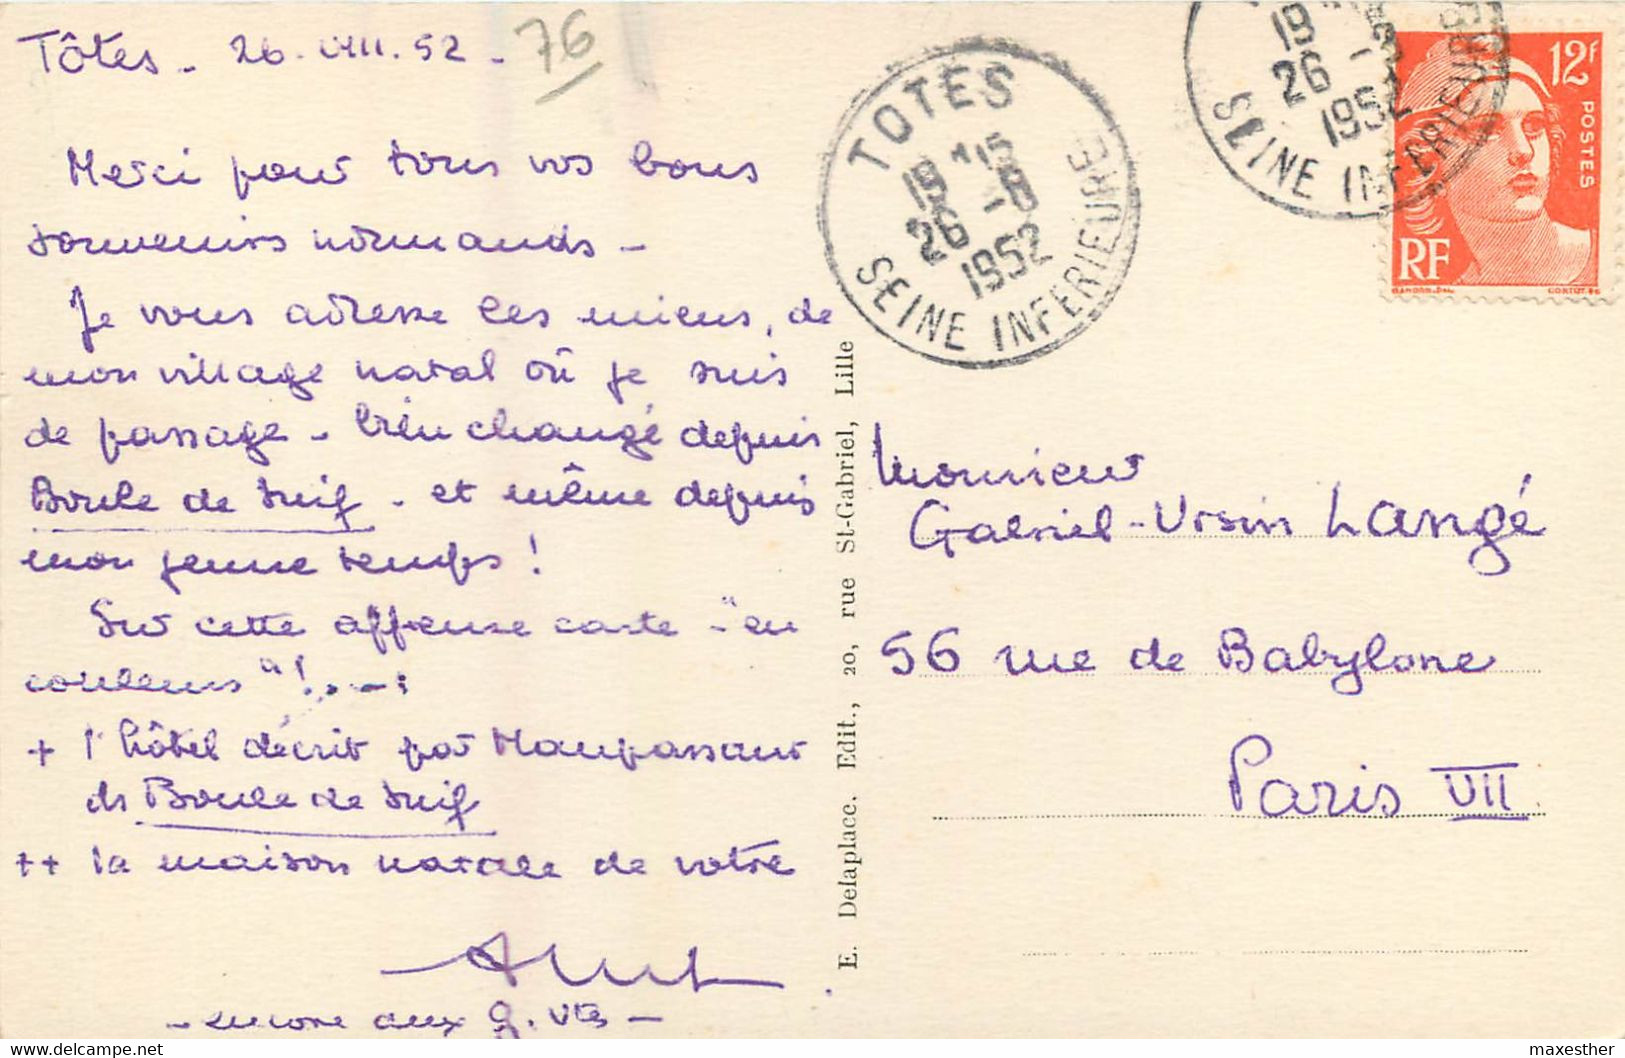 Tôtes - 26. VIII. 52 -
76
Merci pour tous vos bons
souvenirs normands -
Je vous adresse les miens, de
mon village natal où je suis
de passage - bien changé depuis
Boule de Suif - et même depuis
mon jeune temps !
Sur cette affreuse carte - "en
couleurs" !
+ l'hôtel décrit par Maupassant
ds Boule de Suif
++ la maison natale de votre
- encore aux
E. Delaplace. Edit., 20, rue St-Gabriel, Lille
TOTES
19 H 15
26 -8
1952
SEINE INFERIEURE
19
26 -8
1952
SEINE INFERIEURE
12F
POSTES
RF
GANDON.DEL.
CORTOT.SC
Monsieur
Gabriel-Ursin Langé
56 rue de Babylone
Paris VII
maxesther